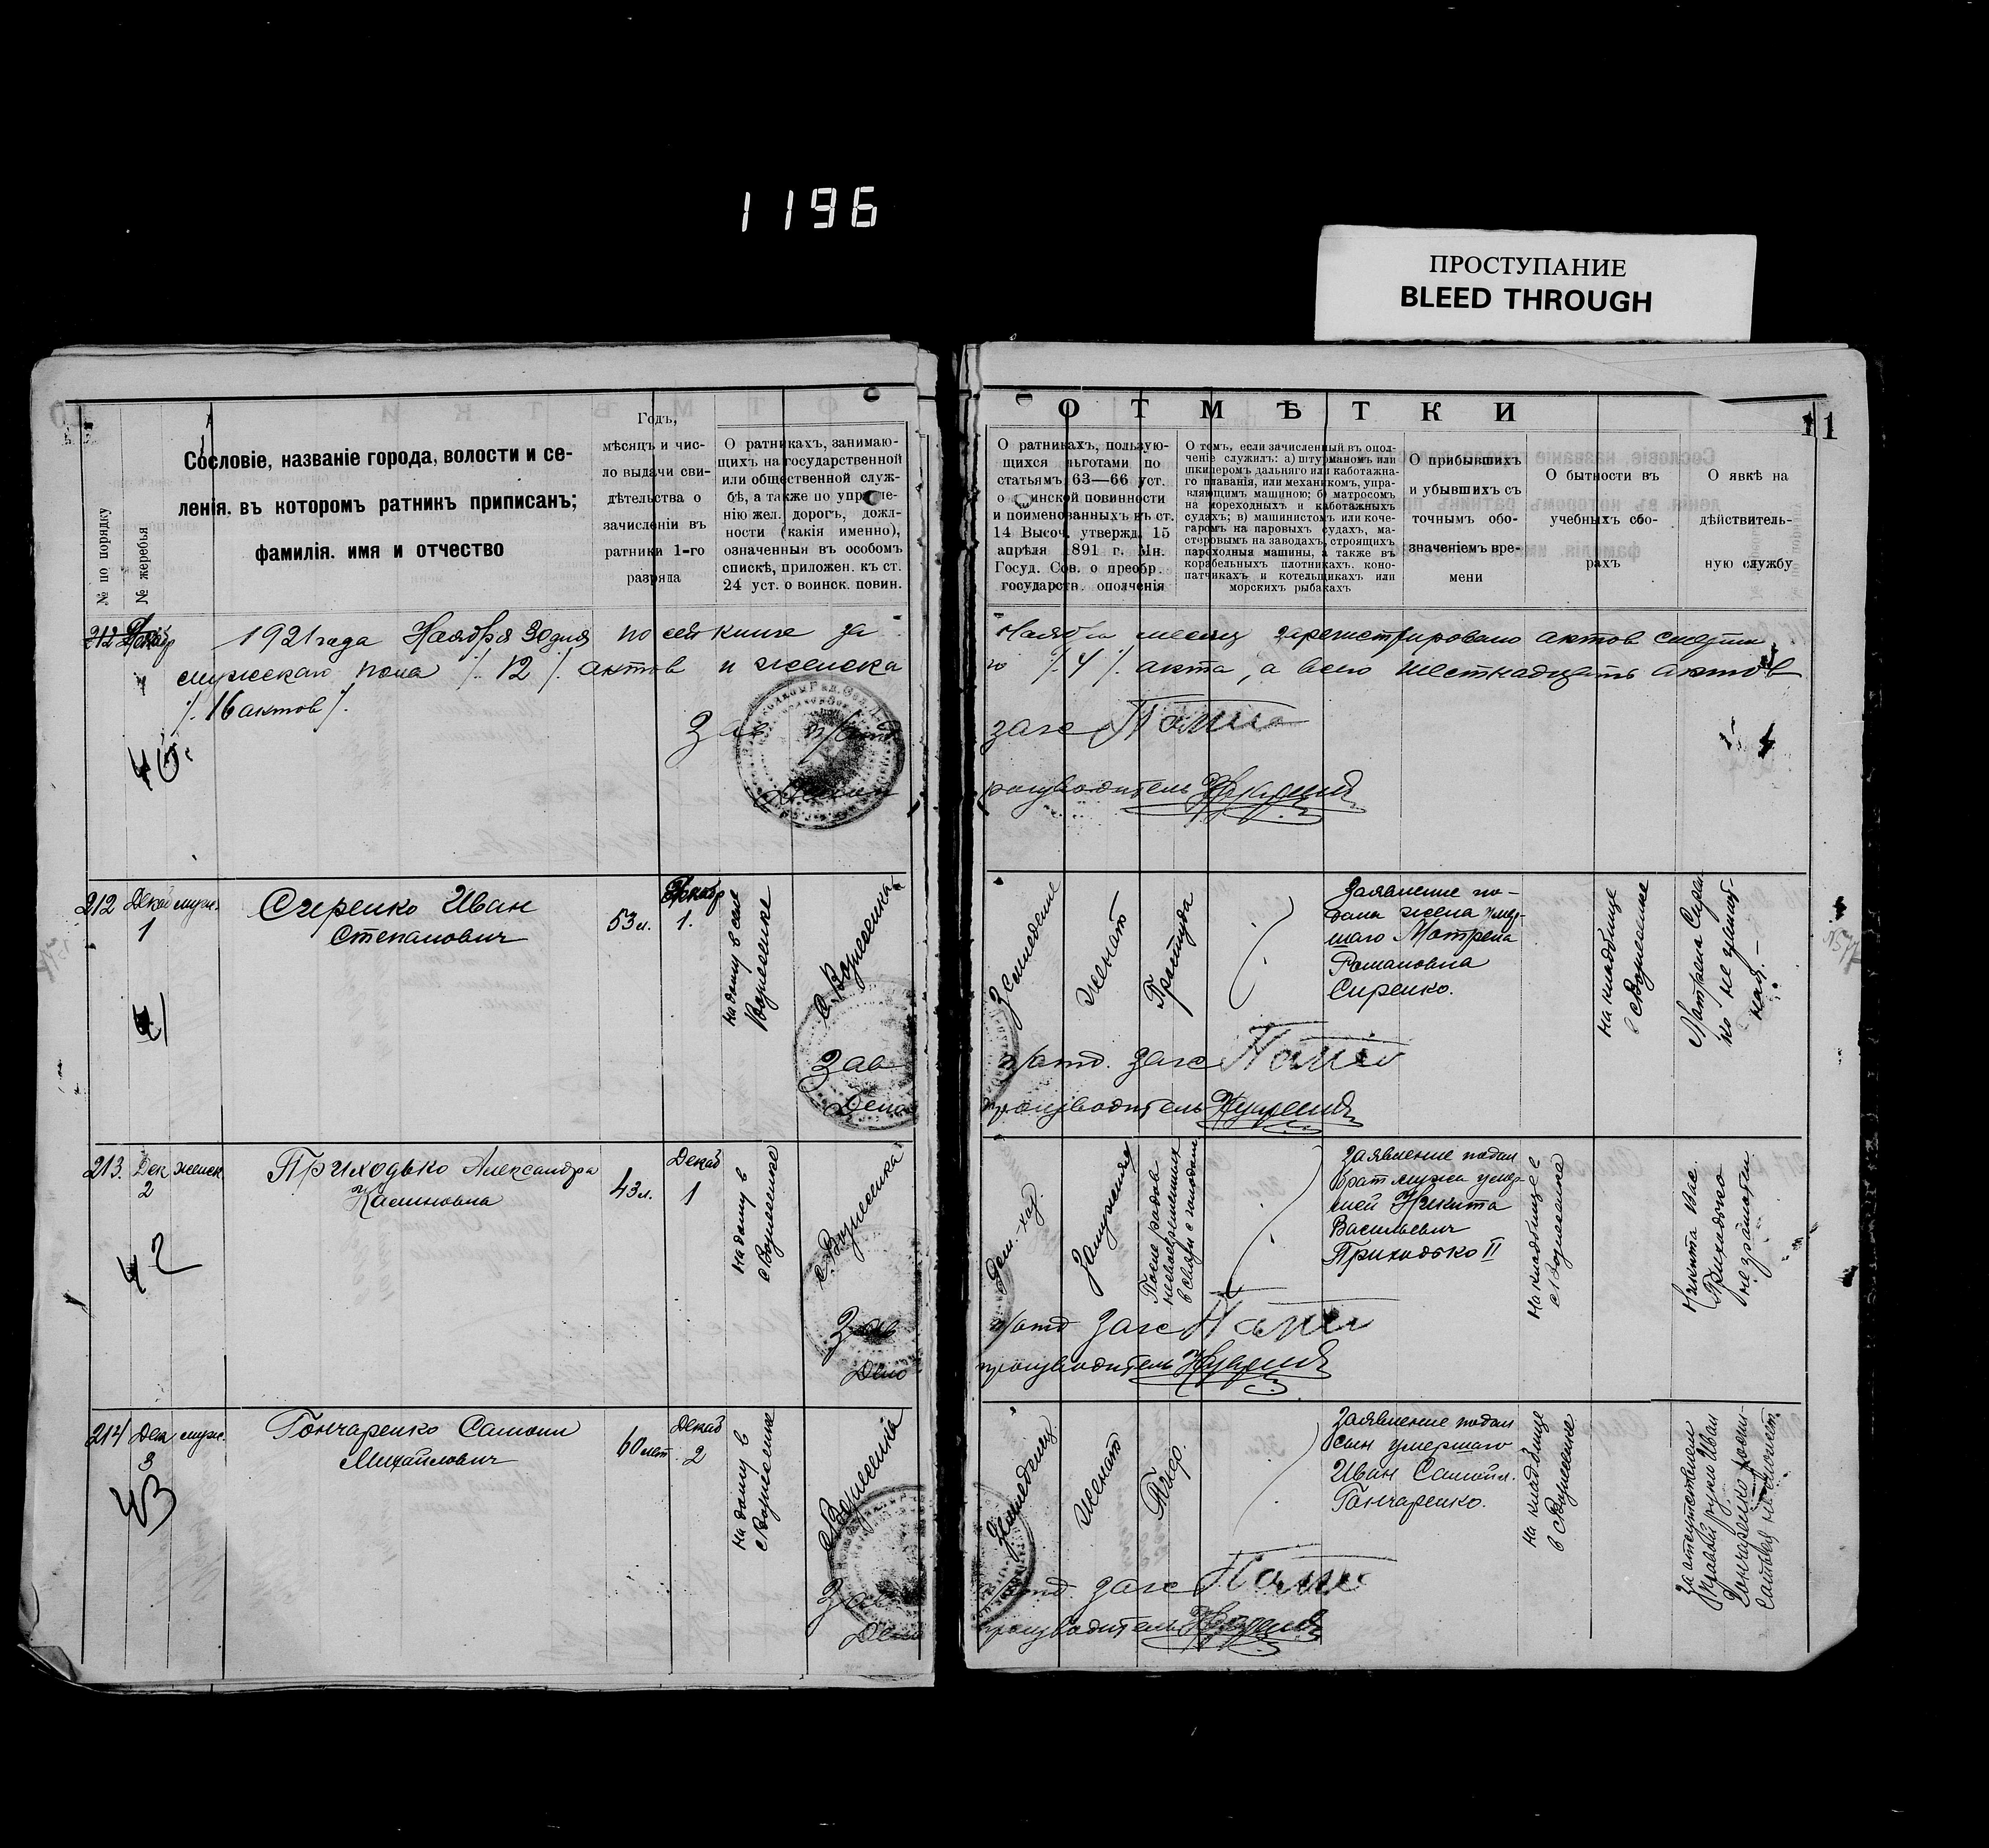 1196
ПРОСТУПАНИЕ
BLEED THROUGH
11
№ по порядку
№ жеребья
Сословіе, названіе города, волости и се-
ленія. въ которомъ ратникъ приписанъ;
фамилія. имя и отчество
Годъ,
мѣсяцъ и чис-
ло выдачи сви-
дѣтельства о
зачисленіи въ
ратники 1-го
разряда
О ратникахъ, занимаю-
щихъ на государственной
или общественной служ-
бѣ, а также по управле-
нію жел. дорогъ, долж-
ности (какія именно),
означенныя въ особомъ
спискѣ, приложен. къ ст.
24 уст. о воинск. повин.
ОТМѢТКИ
О ратникахъ, пользую-
щихся льготами по
статьямъ 63—66 уст.
о воинской повинности
и поименованныхъ въ ст.
14 Высоч. утвержд. 15
апрѣля 1891 г. Мн.
Госуд. Сов. о преобр.
государств. ополченія
О томъ, если зачисленный въ опол-
ченіе служилъ: а) штурманомъ или
шкиперомъ дальняго или каботажна-
го плаванія, или механикомъ, упра-
вляющимъ машиною; б) матросомъ
на мореходныхъ и каботажныхъ
судахъ; в) машинистомъ или коче-
гаромъ на паровыхъ судахъ, ма-
стеровымъ на заводахъ, строящихъ
пароходныя машины, а также въ
корабельныхъ плотникахъ. коно-
патчикахъ и котельщикахъ или
морскихъ рыбакахъ
О прибывшихъ
и убывшихъ съ
точнымъ обо-
значеніемъ вре-
мени
О бытности въ
учебныхъ сбо-
рахъ
О явкѣ на
дѣйствитель-
ную службу
1921 года Ноября 30 дня по сей книге за Ноябрь месяц зарегистрировано актов смерти
мужскаго пола /. 12 /. актов и женска го /. 4 /. акта, а всего шестнадцать актов
/. 16 актов /.
Зав. п/отд. загс
Делопроизводитель
212 Декаб мужс.
1
41
Сиренко Иван
Степанович
53 л.
Декабр
1.
на дому в селе
Вознесенке
с. Вознесенка
Земледелие
женат
Простуда
Заявление по-
дала жена умер-
шаго Мотрена
Романовна
Сиренко.
на кладбище
с Вознесенке
Мотрена Сирен
ко не грамот-
ная. —
Зав. п/отд. загс
Делопроизводитель
213. Дек женск.
2
42
Приходько Александра
Калиновна
43 л.
Декаб
1
на дому в
с Вознесенке
с. Вознесенка
Дом. хоз.
Замужняя
После родов
несвоевременных
в связи с голодом
Заявление подал
брат мужа умер-
шей Никита
Васильевич
Приходько II
на кладбище с
с Вознесенка
Никита Вас.
Приходько
неграмотен
Зав п/отд загс
Делопроизводитель
214 Дек мужс.
3
43
Гончаренко Самоил
Михайлович
60 лет
Декаб
2
на дому в
с Вознесенке
с Вознесенка
Земледелец
женат
Тиф.
Заявление подал
сын умершаго
Иван Самойл.
Гончаренко.
на кладбище
в с Вознесенке
За отсутствием
правой руки Иван
Гончаренко роспи-
саться не может
Зав п/отд. загс
Делопроизводитель